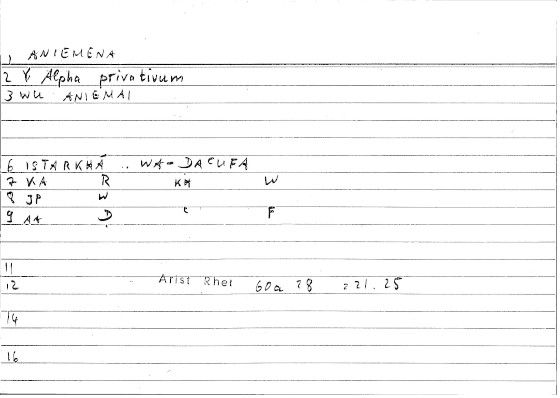 1 ANIEMENA
2 Y. Alpha privativum
3 WU ANIEMAI
6 ISTARKHĀ .. WA-ḌAʿUFA
7 KA R KH W
8 JP W
9 AA Ḍ ʿ F
11
12 Arist Rhet 60a 28 = 21.25
14
16